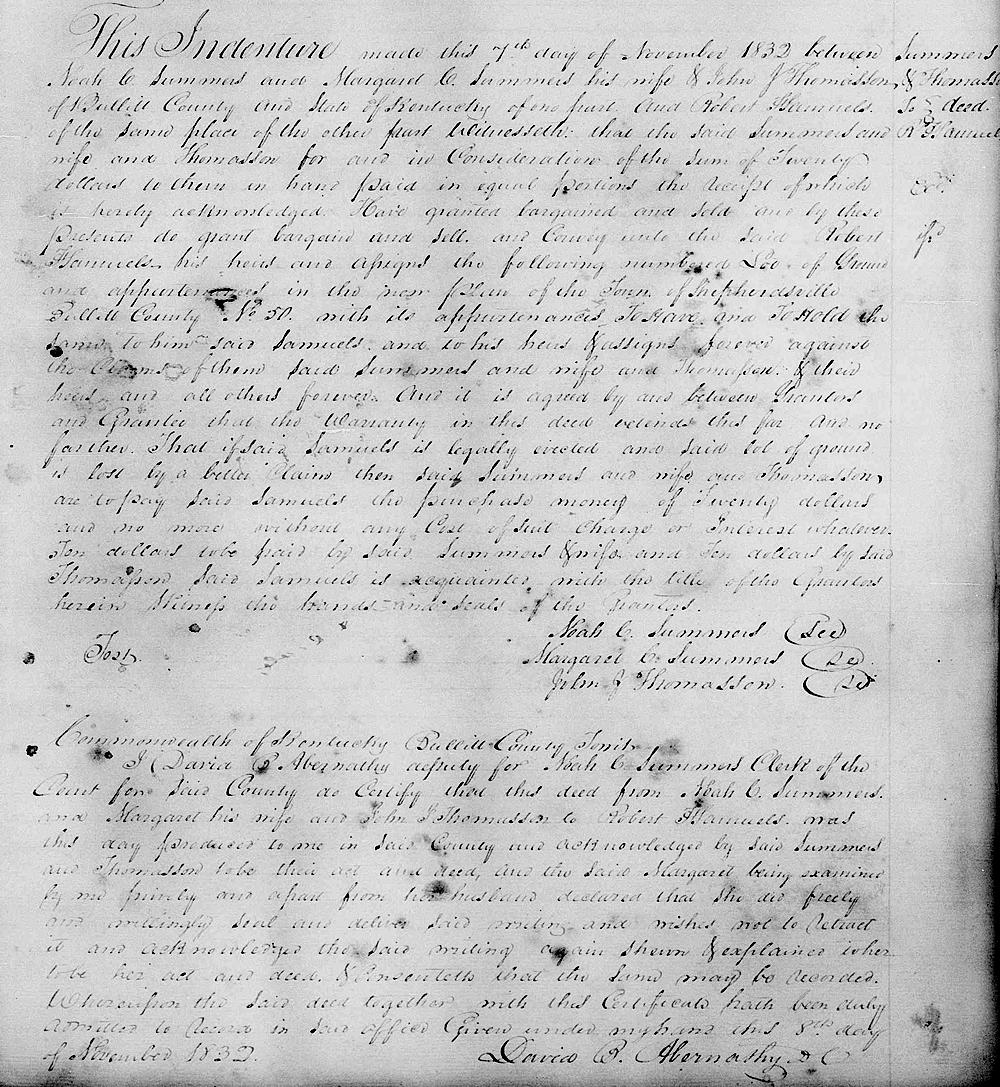 This Indenture made this 7th day of November 1832 between
Noah C Summers and Margaret C Summers his wife & John J Thomasson
of Bullitt County and State of Kentucky of one part. And Robert F Samuels.
of the same place of the other part Witnesseth: that the said Summers and
wife and Thomasson for and in Consideration of the sum of Twenty
dollars to them in hand paid in equal portions the receipt of which
is hereby acknowledged. Have granted bargained and sold and by these
presents do grant bargain and sell. and Convey unto the said Robert
F Samuels his heirs and assigns the following numbered Lot of Ground
and appurtenances in the new plan of the Town of Shepherdsville
Bullitt County No 50. with its appurtenances To Have and To Hold the
same to him said Samuels. and to his heirs & assigns forever against
the Claims of them said Summers and wife and Thomasson. & their
heirs and all others forever. And it is agreed by and between Grantors
and Grantee that the Warranty in this deed extends this far and no
farther. That if said Samuels is legally evicted and said lot of ground
is lost by a better Claim then said Summers and wife and Thomasson
are to pay said Samuels the purchase money of Twenty dollars
and no more without any Cost of suit Charge or Interest whatever.
Ten dollars to be paid by said Summers & wife and Ten dollars by said
Thomasson said Samuels is acquainted with the title of the Grantors
herein Witness the hands and seals of the Grantors.
Noah C. Summers (Seal)
Test.
Margaret C Summers (Seal)
John J Thomasson. (Seal)
Summers
& Thomasson
To } deed.
R. F Samuels
Commonwealth of Kentucky Bullitt County Towit
I David B Abernathy deputy for Noah C Summers Clerk of the
Court for said County do Certify that this deed from Noah C. Summers.
and Margaret his wife and John J Thomasson to Robert F Samuels. was
this day produced to me in said County and acknowledged by said Summers
and Thomasson to be their act and deed, and the said Margaret being examined
by me privily and apart from her husband declared that she did freely
and willingly seal and deliver said writing and wishes not to retract
it and acknowledged the said writing again shewn & explained to her
to be her act and deed. & Consenteth that the same may be recorded.
Whereupon the said deed together with this Certificate hath been duly
admitted to record in said office Given under my hand this 8th day
of November 1832. David B. Abernathy D C